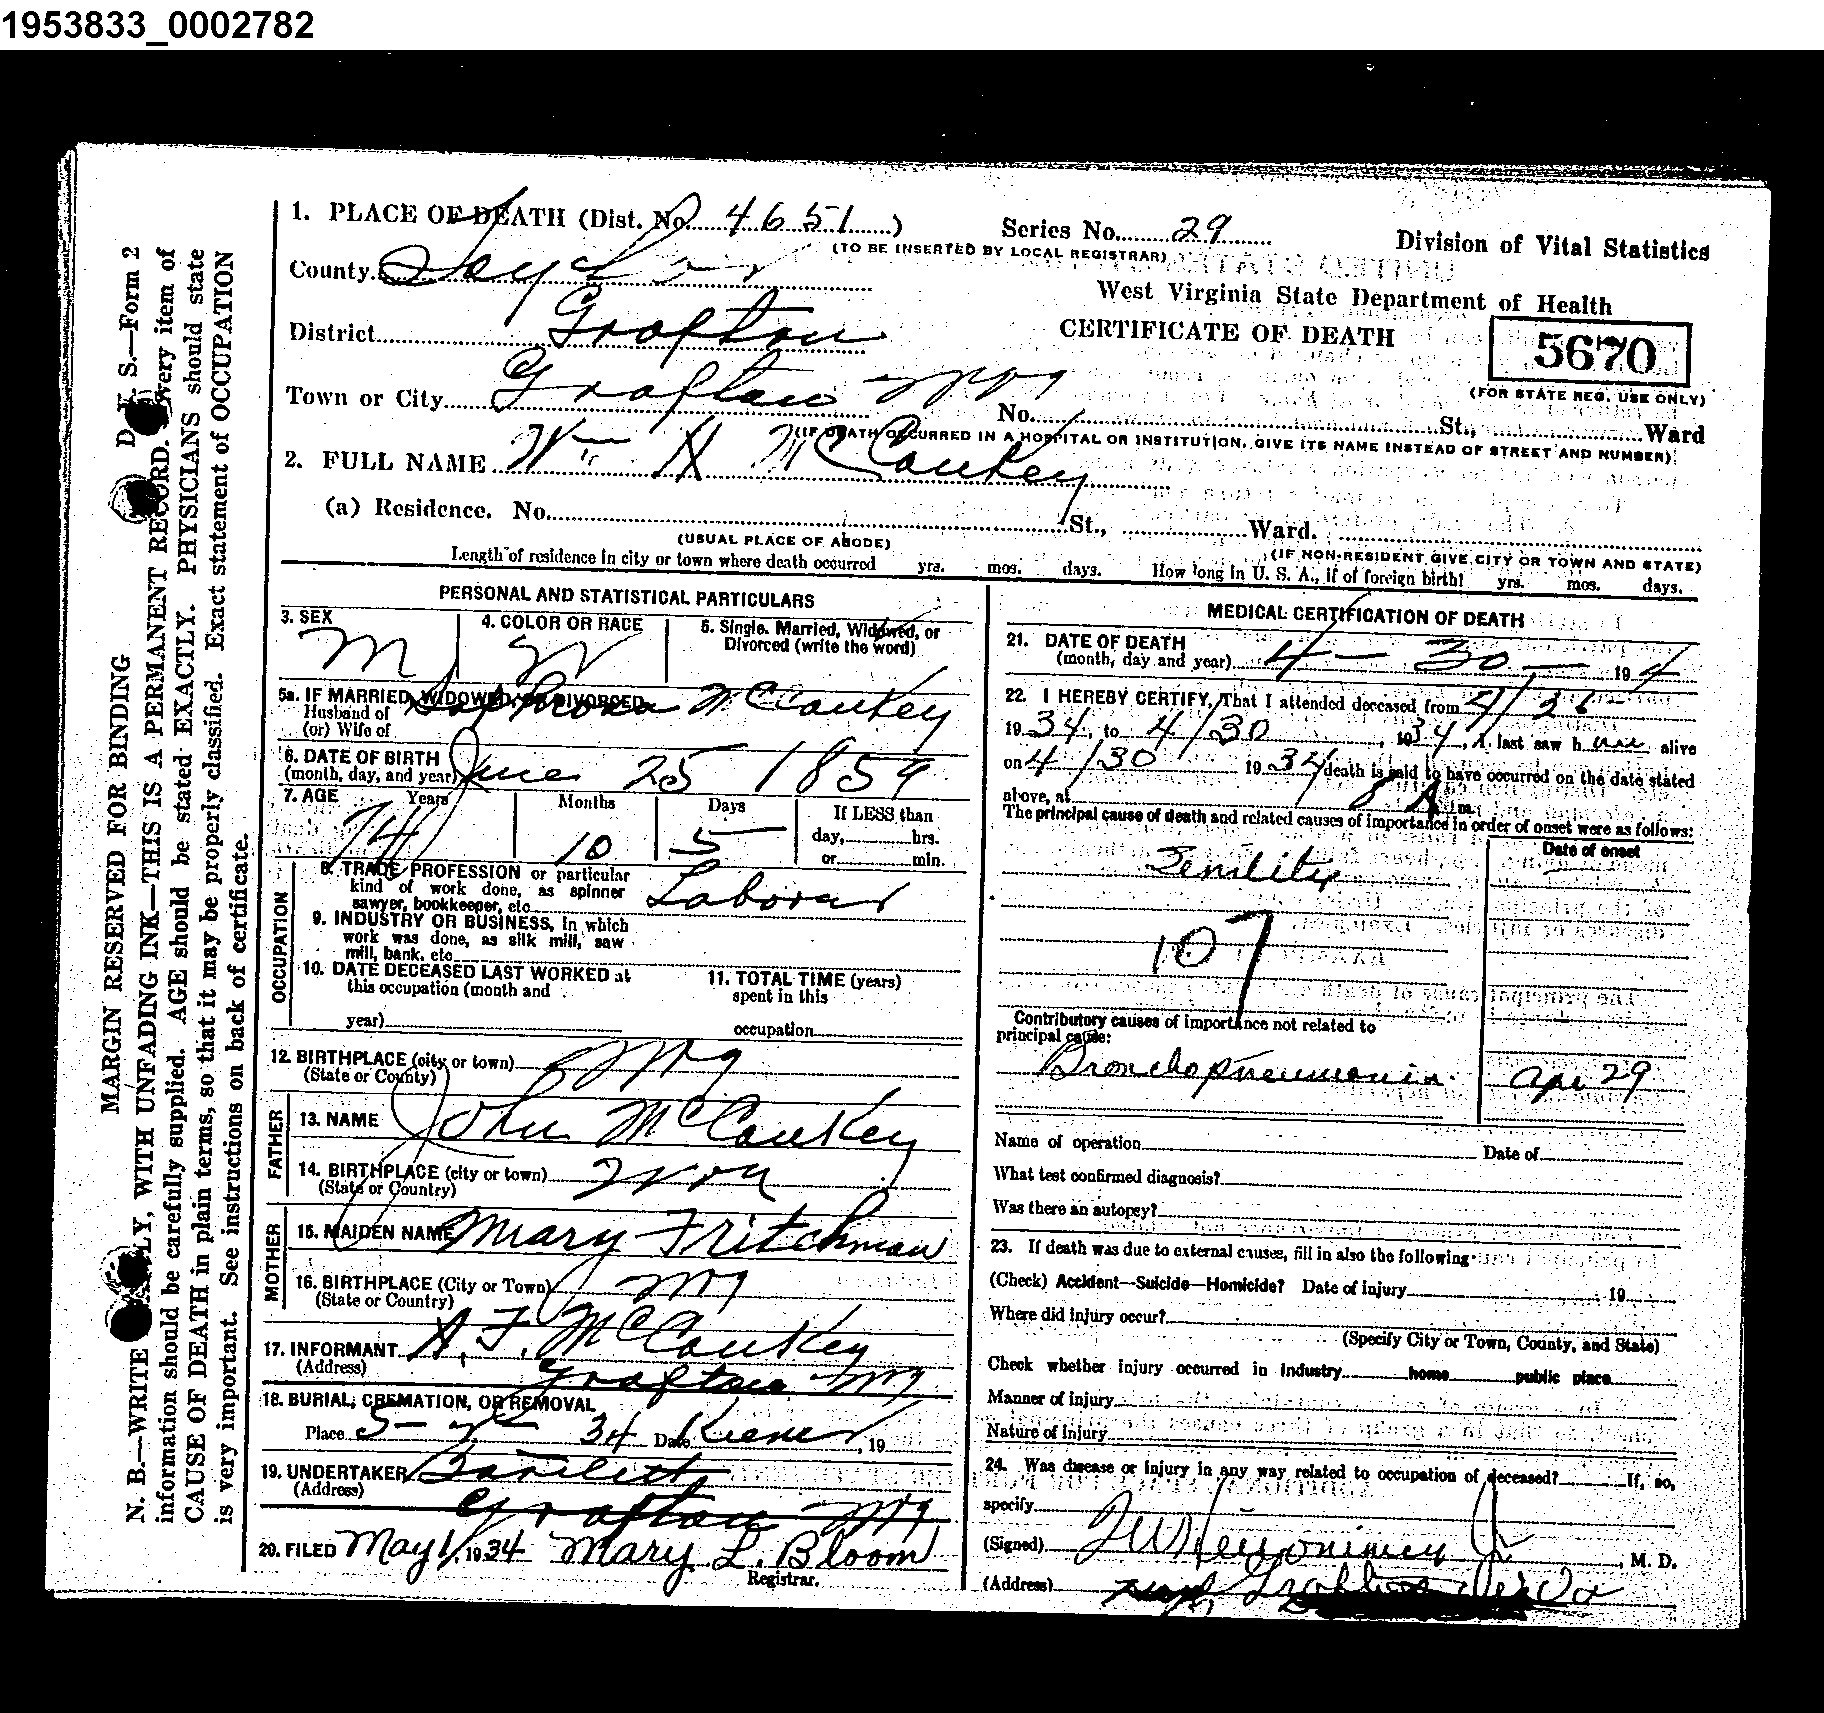 1953833_0002782
1. PLACE OF DEATH (Dist. No. 4651)
Series No. 29
(TO BE INSERTED BY LOCAL REGISTRAR)
Division of Vital Statistics
County Taylor
West Virginia State Department of Health
District Grafton
CERTIFICATE OF DEATH
5670
(FOR STATE REG. USE ONLY)
Town or City Grafton
No. St., Ward
(IF DEATH OCCURRED IN A HOSPITAL OR INSTITUTION, GIVE ITS NAME INSTEAD OF STREET AND NUMBER)
2. FULL NAME Wm H McCauley
(a) Residence. No. St., Ward.
(USUAL PLACE OF ABODE)
(IF NON-RESIDENT GIVE CITY OR TOWN AND STATE)
Length of residence in city or town where death occurred yrs. mos. days. How long in U. S. A., if of foreign birth? yrs. mos. days.
PERSONAL AND STATISTICAL PARTICULARS
3. SEX
M
4. COLOR OR RACE
W
5. Single. Married, Widowed, or
Divorced (write the word)
5a. IF MARRIED, WIDOWED, OR DIVORCED
Husband of
(or) Wife of
McCauley
6. DATE OF BIRTH
(month, day, and year) June 25 1859
7. AGE Years Months Days
74 10 5
If LESS than
day, hrs.
or min.
OCCUPATION
8. TRADE, PROFESSION or particular
kind of work done, as spinner
sawyer, bookkeeper, etc
Laborer
9. INDUSTRY OR BUSINESS, in which
work was done, as silk mill, saw
mill, bank, etc
10. DATE DECEASED LAST WORKED at
this occupation (month and
year)
11. TOTAL TIME (years)
spent in this
occupation
12. BIRTHPLACE (city or town)
(State or County)
FATHER
13. NAME John McCauley
14. BIRTHPLACE (city or town)
(State or Country)
MOTHER
15. MAIDEN NAME Mary Fritchman
16. BIRTHPLACE (City or Town)
(State or Country)
17. INFORMANT A. F. McCauley
(Address) Grafton
18. BURIAL, CREMATION, OR REMOVAL
Place 34 Date , 19
19. UNDERTAKER
(Address) Grafton
20. FILED May 1, 1934 Mary L. Bloom
Registrar.
MEDICAL CERTIFICATION OF DEATH
21. DATE OF DEATH
(month, day and year) 4-30- 194
22. I HEREBY CERTIFY, That I attended deceased from
1934, to 4/30, 1934, I last saw him alive
on 4/30 1934 death is said to have occurred on the date stated
above, at 8 A m.
The principal cause of death and related causes of importance in order of onset were as follows:
Date of onset
Senility
107
Contributory causes of importance not related to
principal cause:
Bronchopneumonia Apr 29
Name of operation Date of
What test confirmed diagnosis?
Was there an autopsy?
23. If death was due to external causes, fill in also the following:
(Check) Accident—Suicide—Homicide? Date of injury 19
Where did injury occur?
(Specify City or Town, County, and State)
Check whether injury occurred in industry home public place
Manner of injury
Nature of injury
24. Was disease or injury in any way related to occupation of deceased? If, so,
specify
(Signed) , M. D.
(Address) Grafton
MARGIN RESERVED FOR BINDING
N. B.—WRITE WITH UNFADING INK—THIS IS A PERMANENT RECORD. Every item of
information should be carefully supplied. AGE should be stated EXACTLY. PHYSICIANS should state
CAUSE OF DEATH in plain terms, so that it may be properly classified. Exact statement of OCCUPATION
is very important. See instructions on back of certificate.
S.—Form 2